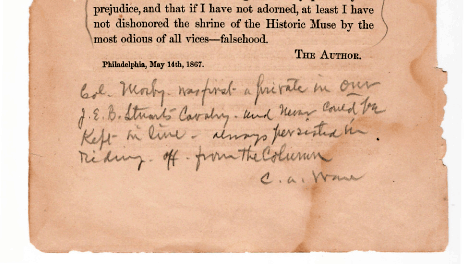 prejudice, and that if I have not adorned, at least I have
not dishonored the shrine of the Historic Muse by the
most odious of all vices—falsehood.
THE AUTHOR.
Philadelphia, May 14th, 1867.
Col. Mosby. was first a private in Our
J.E.B. Stuarts Cavalry. and Never Could be
Kept in line - always persisted in
riding. off. from the Column
C. A.